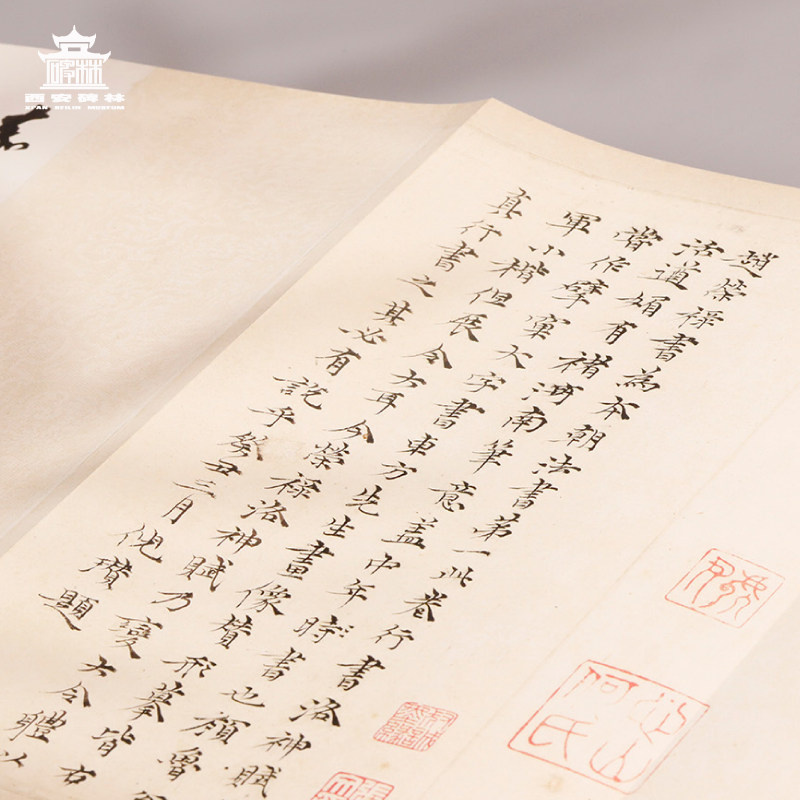 碑林
西安碑林
XI'AN BEILIN MUSEUM
趙榮祿書為本朝法書第一此卷行書洛神賦
活遒媚有褚河南筆意蓋中年時書也顏魯
嘗作擘窠大字書東方先生畫像贊形摹皆右
軍小楷但展令方耳今榮祿洛神賦乃變大令體以
真行書之其必有說乎癸丑三月倪瓚題